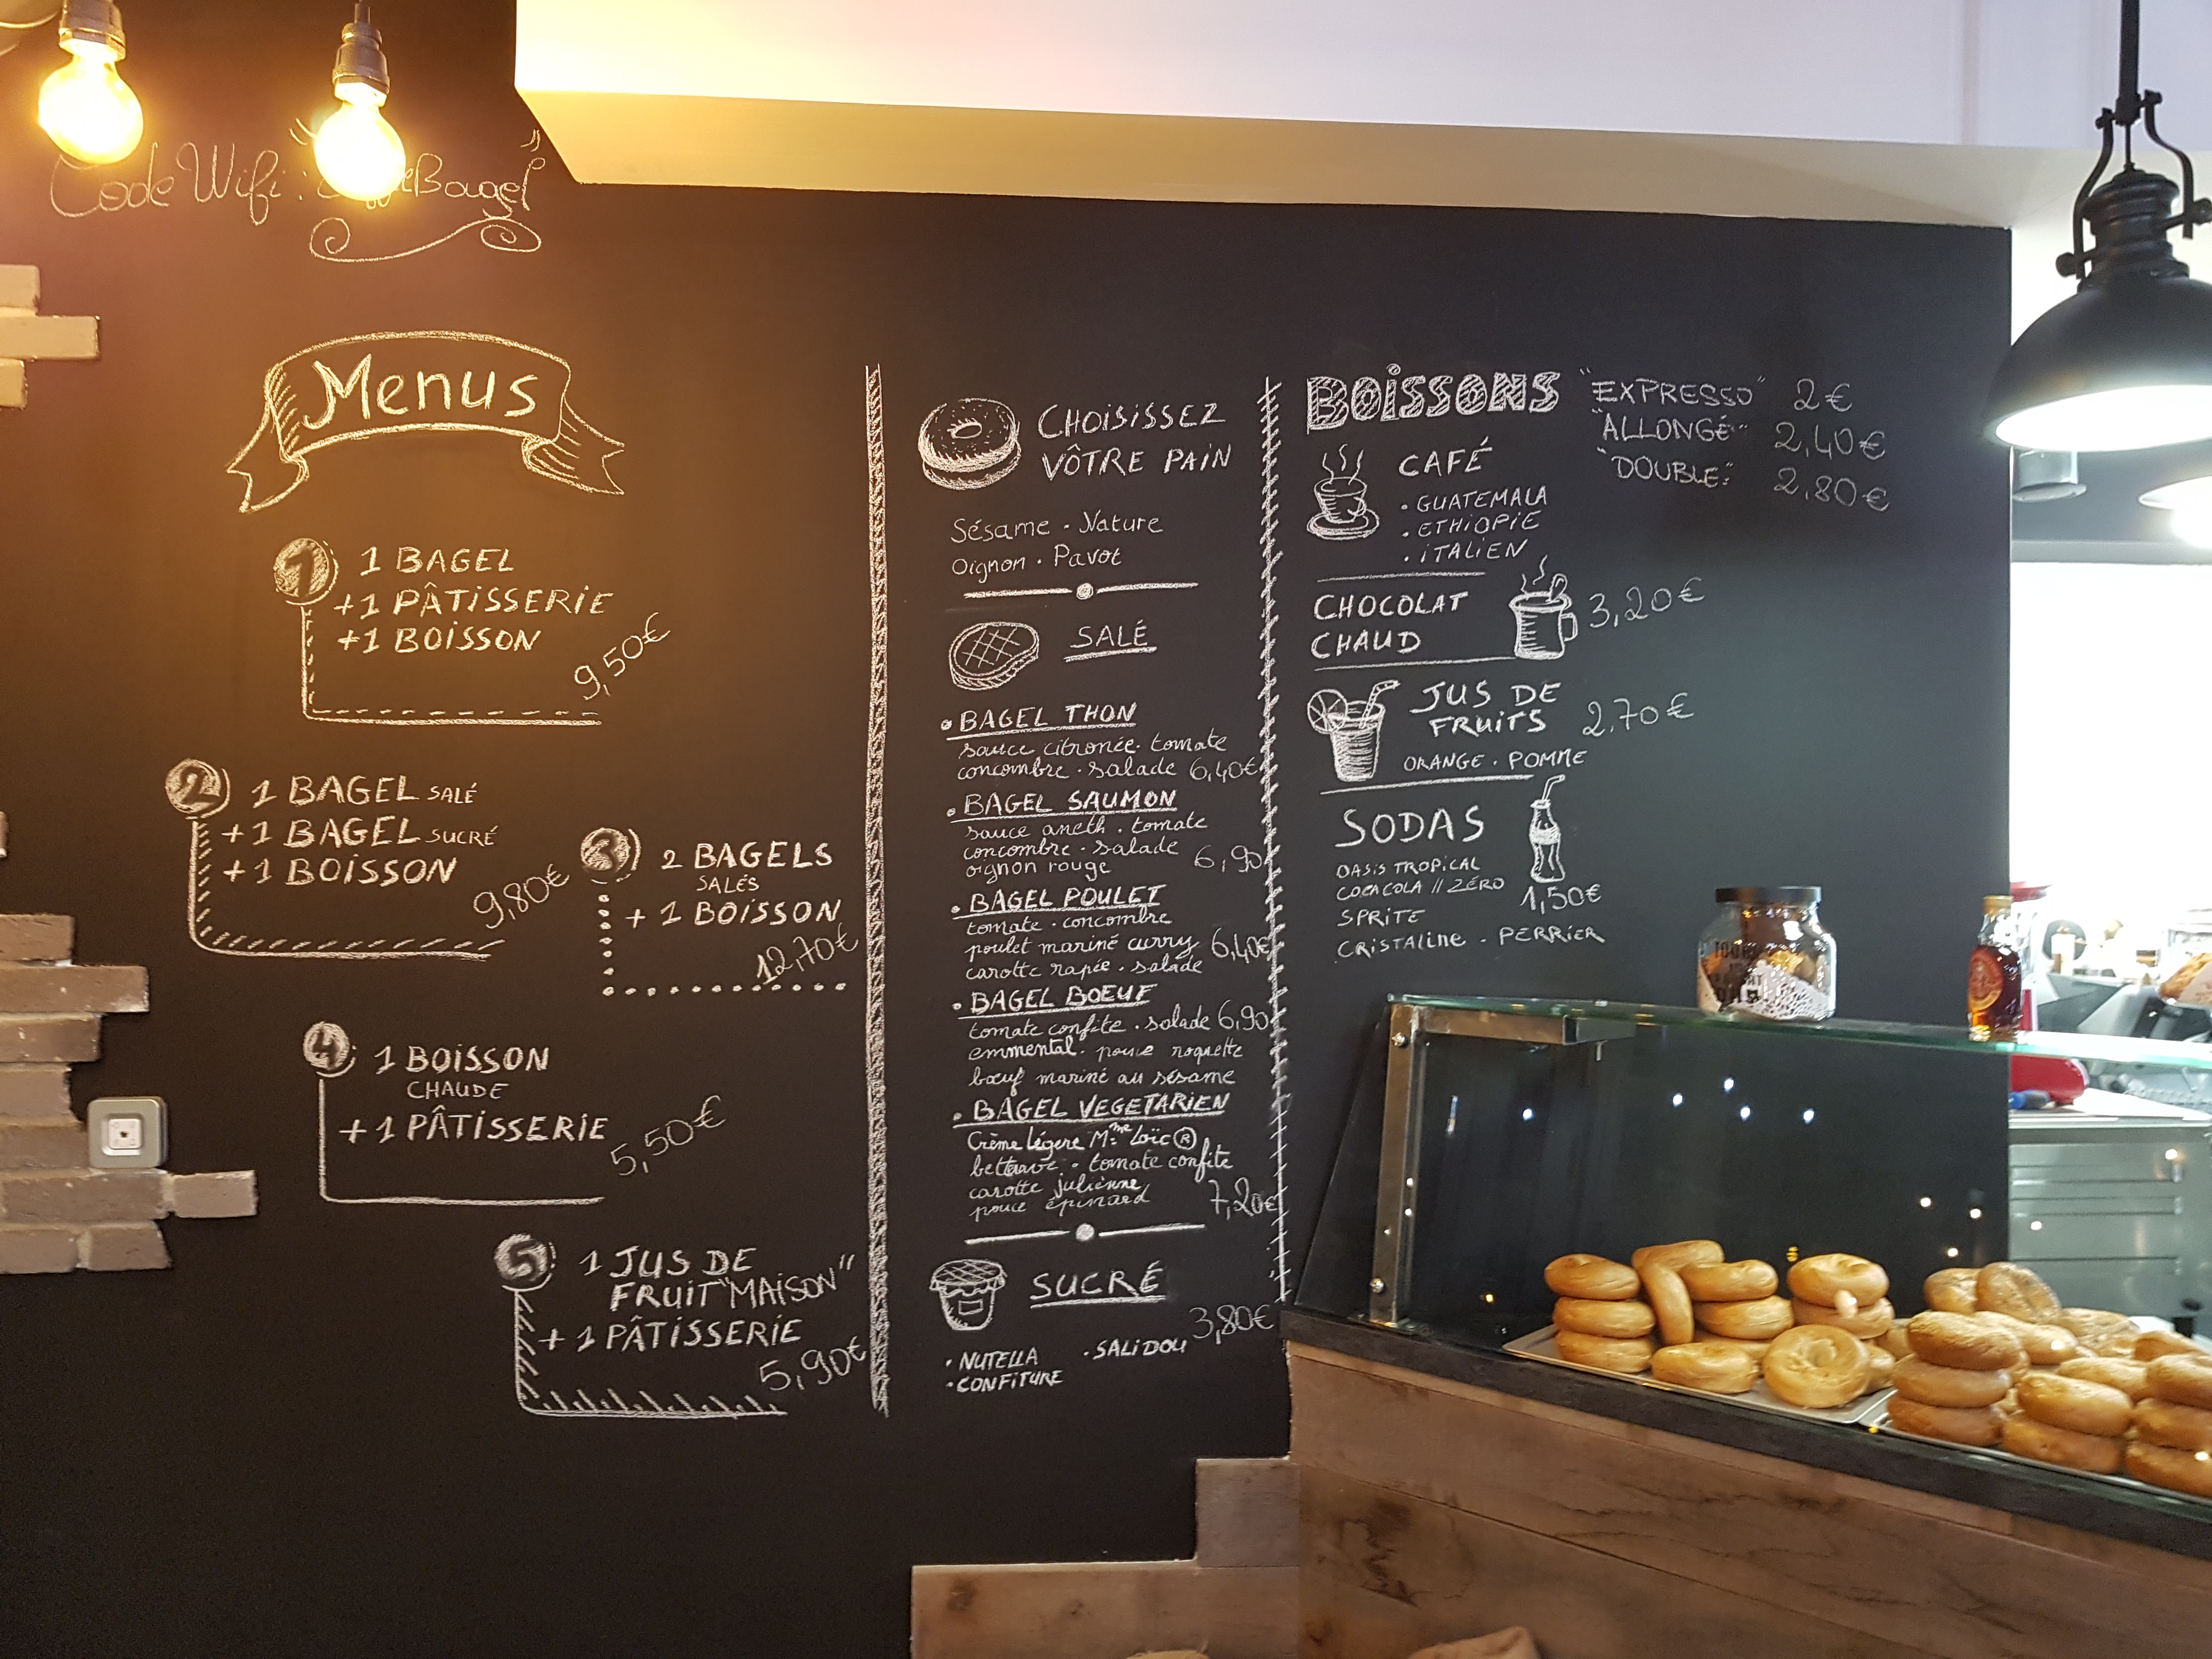 Code Wifi : Bagel"
Menus
1
1 BAGEL
+1 PÂTISSERIE
+1 BOISSON
9,50€
2
1 BAGEL SALÉ
+1 BAGEL SUCRÉ
+1 BOISSON
9,80€
3
2 BAGELS
SALÉS
+ 1 BOISSON
12,70€
4
1 BOISSON
CHAUDE
+1 PÂTISSERIE
5,50€
5
1 JUS DE
FRUIT "MAISON"
+1 PÂTISSERIE
5,90€
CHOISISSEZ
VÔTRE PAIN
Sésame · Nature
Oignon · Pavot
SALÉ
• BAGEL THON
sauce citronée · tomate
concombre · salade 6,40€
• BAGEL SAUMON
sauce aneth · tomate
concombre · salade
oignon rouge 6,90
• BAGEL POULET
tomate · concombre
poulet mariné curry 6,40€
carotte rapée · salade
• BAGEL BOEUF
tomate confite · salade 6,90
emmental · pouce roquette
bœuf mariné au sésame
• BAGEL VEGETARIEN
Crème légere Mme Loïc ®
betterave · tomate confite
carotte julienne
pouce épinard 7,20€
SUCRÉ
3,80€
• NUTELLA • SALIDOU
• CONFITURE
BOISSONS
"EXPRESSO" 2€
"ALLONGÉ" 2,40€
"DOUBLE" 2,80€
CAFÉ
• GUATEMALA
• ETHIOPIE
• ITALIEN
CHOCOLAT
CHAUD
3,20€
JUS DE
FRUITS 2,70€
ORANGE · POMME
SODAS
OASIS TROPICAL
COCA COLA // ZÉRO
1,50€
SPRITE
CRISTALINE · PERRIER